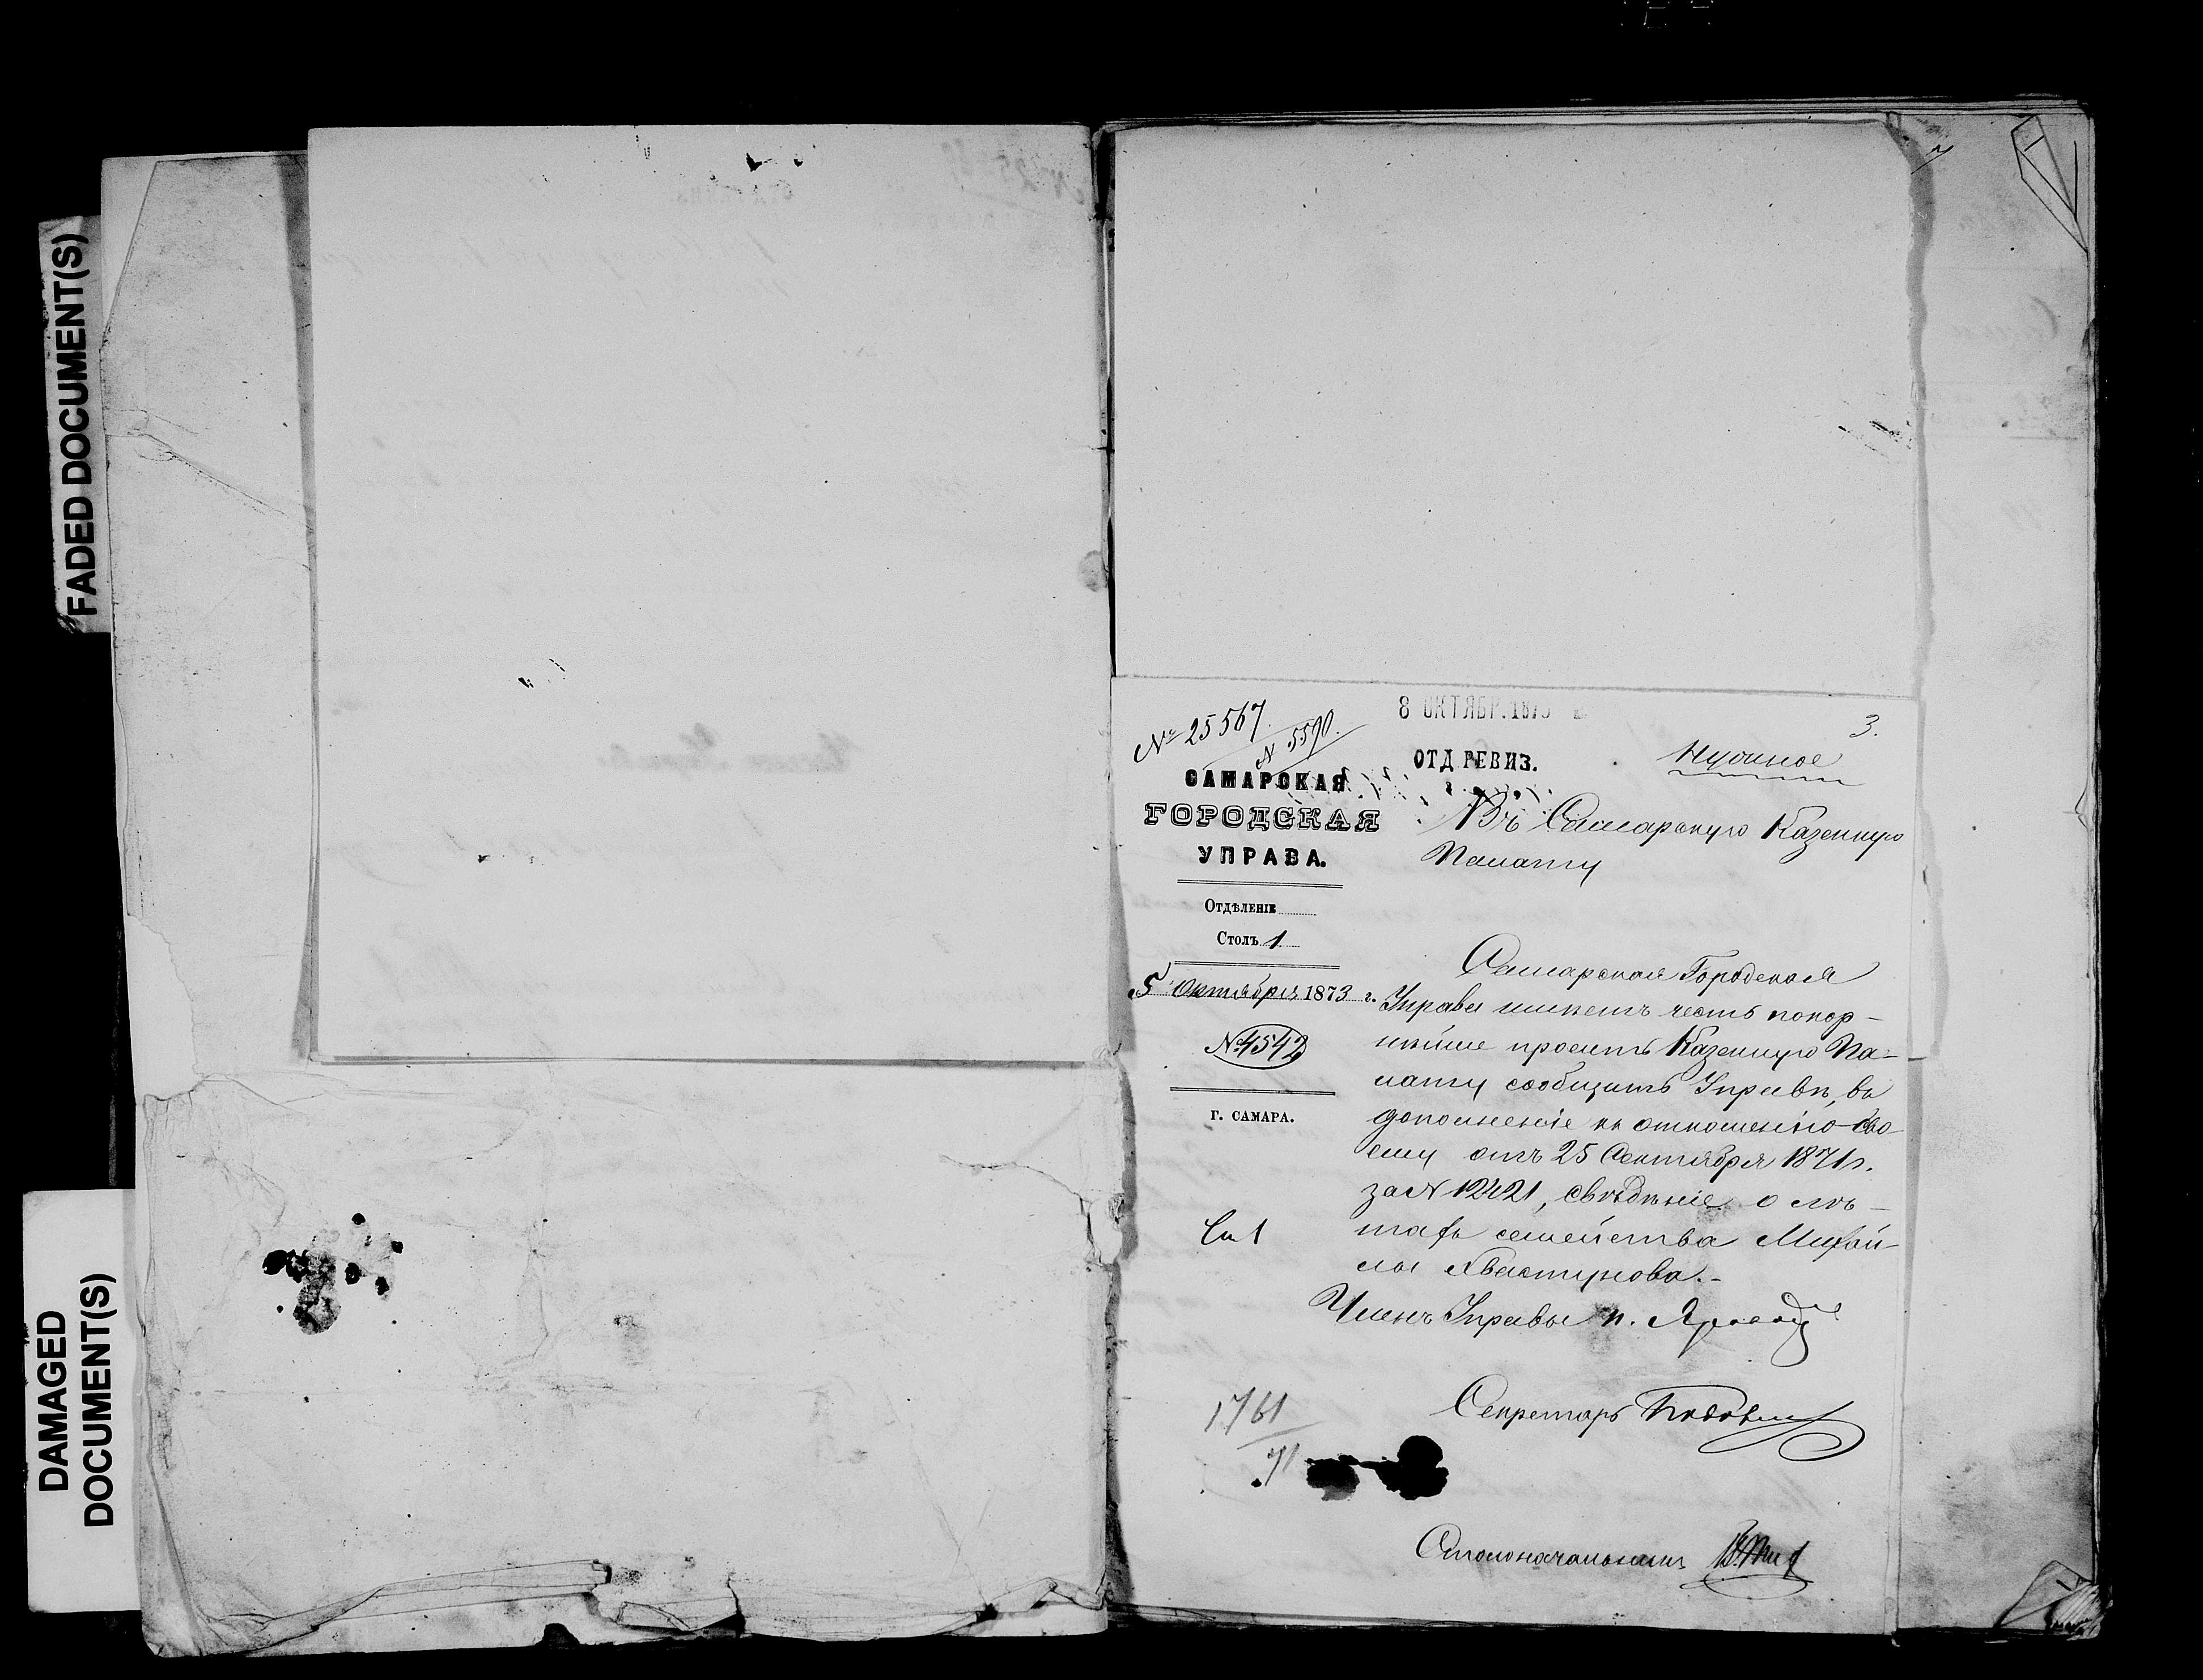 FADED DOCUMENT(S)
DAMAGED
DOCUMENT(S)
№ 25567
N 5590.
8 ОКТЯБР. 1873
3.
ОТД РЕВИЗ.
Нужное
САМАРСКАЯ
ГОРОДСКАЯ
УПРАВА.
Отдѣленіе
Столъ 1
5 Октября 1873 г.
№ 4542
г. САМАРА.
Въ Самарскую Казенную
Палату
Самарская Городская
Управа имѣетъ честь покор-
нѣйше просить Казенную Па-
лату сообщить Управѣ, въ
дополненіе къ отношенію сво-
ему отъ 25 Сентября 1871 г.
за N 12421, свѣдѣніе о лѣ-
тахъ семейства Михаи-
лы Хвастунова.
Членъ Управы
Секретарь
1761
71
Столоначальникъ